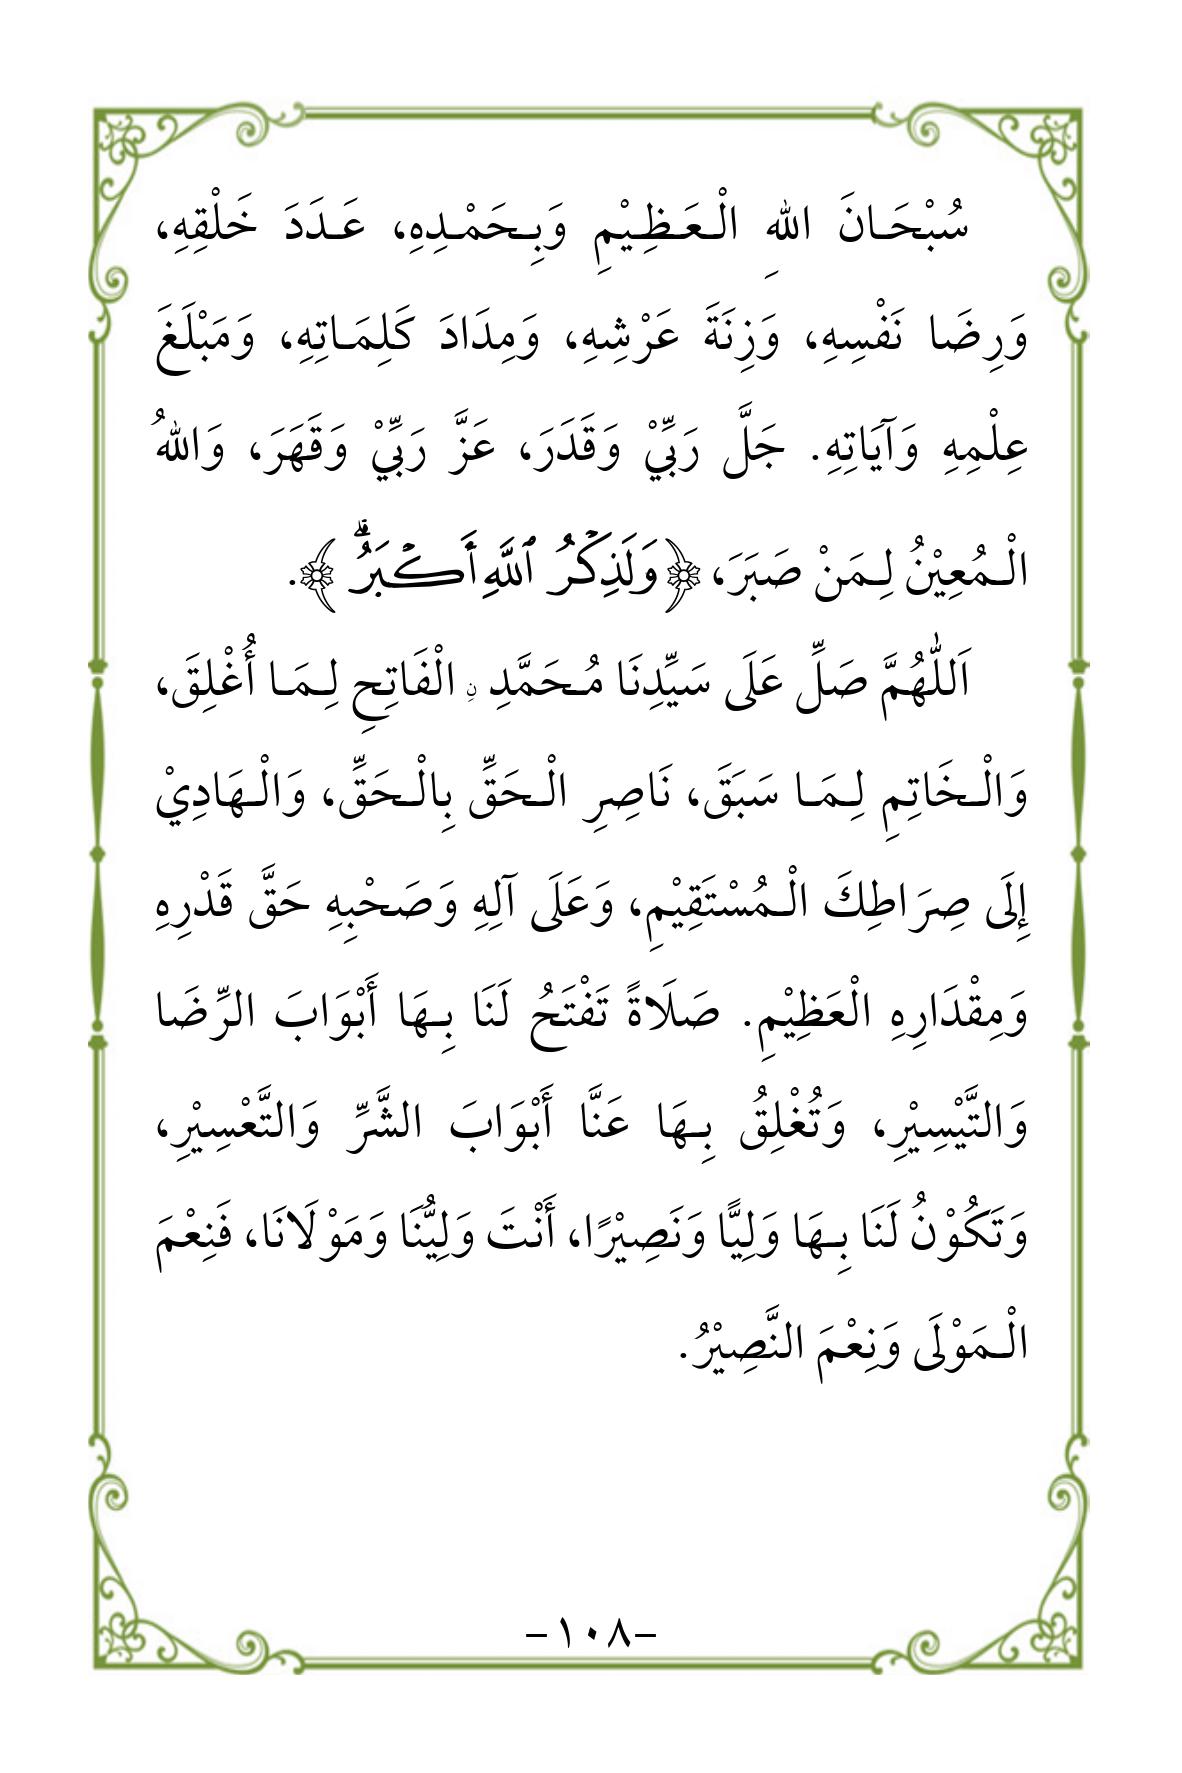 سُبْحَانَ اللهِ الْعَظِيْمِ وَبِحَمْدِهِ، عَدَدَ خَلْقِهِ،
وَرِضَا نَفْسِهِ، وَزِنَةَ عَرْشِهِ، وَمِدَادَ كَلِمَاتِهِ، وَمَبْلَغَ
عِلْمِهِ وَآيَاتِهِ. جَلَّ رَبِّيْ وَقَدَرَ، عَزَّ رَبِّيْ وَقَهَرَ، وَاللهُ
الْمُعِيْنُ لِمَنْ صَبَرَ، ﴿وَلَذِكْرُ ٱللَّهِ أَكْبَرُۗ﴾.
اَللّٰهُمَّ صَلِّ عَلَى سَيِّدِنَا مُحَمَّدِ نِ الْفَاتِحِ لِمَا أُغْلِقَ،
وَالْخَاتِمِ لِمَا سَبَقَ، نَاصِرِ الْحَقِّ بِالْحَقِّ، وَالْهَادِيْ
إِلَى صِرَاطِكَ الْمُسْتَقِيْمِ، وَعَلَى آلِهِ وَصَحْبِهِ حَقَّ قَدْرِهِ
وَمِقْدَارِهِ الْعَظِيْمِ. صَلَاةً تَفْتَحُ لَنَا بِهَا أَبْوَابَ الرِّضَا
وَالتَّيْسِيْرِ، وَتُغْلِقُ بِهَا عَنَّا أَبْوَابَ الشَّرِّ وَالتَّعْسِيْرِ،
وَتَكُوْنُ لَنَا بِهَا وَلِيًّا وَنَصِيْرًا، أَنْتَ وَلِيُّنَا وَمَوْلَانَا، فَنِعْمَ
الْمَوْلَى وَنِعْمَ النَّصِيْرُ.
-١٠٨-